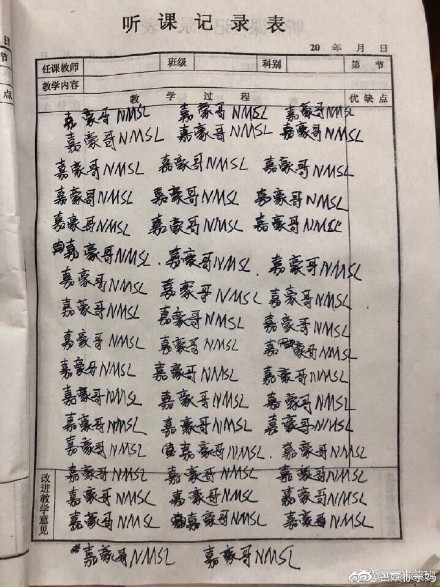 听课记录表
20 年 月 日
任课教师 班级 科别 第 节
教学内容
教学过程 优缺点
嘉豪哥NMSL 嘉豪哥NMSL 嘉豪哥NMSL
嘉豪哥NMSL 嘉豪哥NMSL 嘉豪哥NMSL
嘉豪哥NMSL 嘉豪哥NMSL 嘉豪哥NMSL
嘉豪哥NMSL 嘉豪哥NMSL 嘉豪哥NMSL
嘉豪哥NMSL 嘉豪哥NMSL 嘉豪哥NMSL
嘉豪哥NMSL . 嘉豪哥NMSL . 嘉豪哥NMSL
嘉豪哥NMSL 嘉豪哥NMSL 嘉豪哥NMSL
嘉豪哥NMSL 嘉豪哥NMSL 嘉豪哥NMSL
嘉豪哥NMSL 嘉豪哥NMSL 嘉豪哥NMSL
嘉豪哥NMSL 嘉豪哥NMSL 嘉豪哥NMSL
嘉豪哥NMSL 嘉豪哥NMSL 嘉豪哥NMSL
嘉豪哥NMSL 嘉豪哥NMSL 嘉豪哥NMSL
嘉豪哥NMSL 嘉豪哥NMSL . 嘉豪哥NMSL
改进教学意见
嘉豪哥NMSL 嘉豪哥NMSL 嘉豪哥NMSL
嘉豪哥NMSL 嘉豪哥NMSL 嘉豪哥NMSL
嘉豪哥NMSL 嘉豪哥NMSL 嘉豪哥NMSL
嘉豪哥NMSL 嘉豪哥NMSL
日
节
点